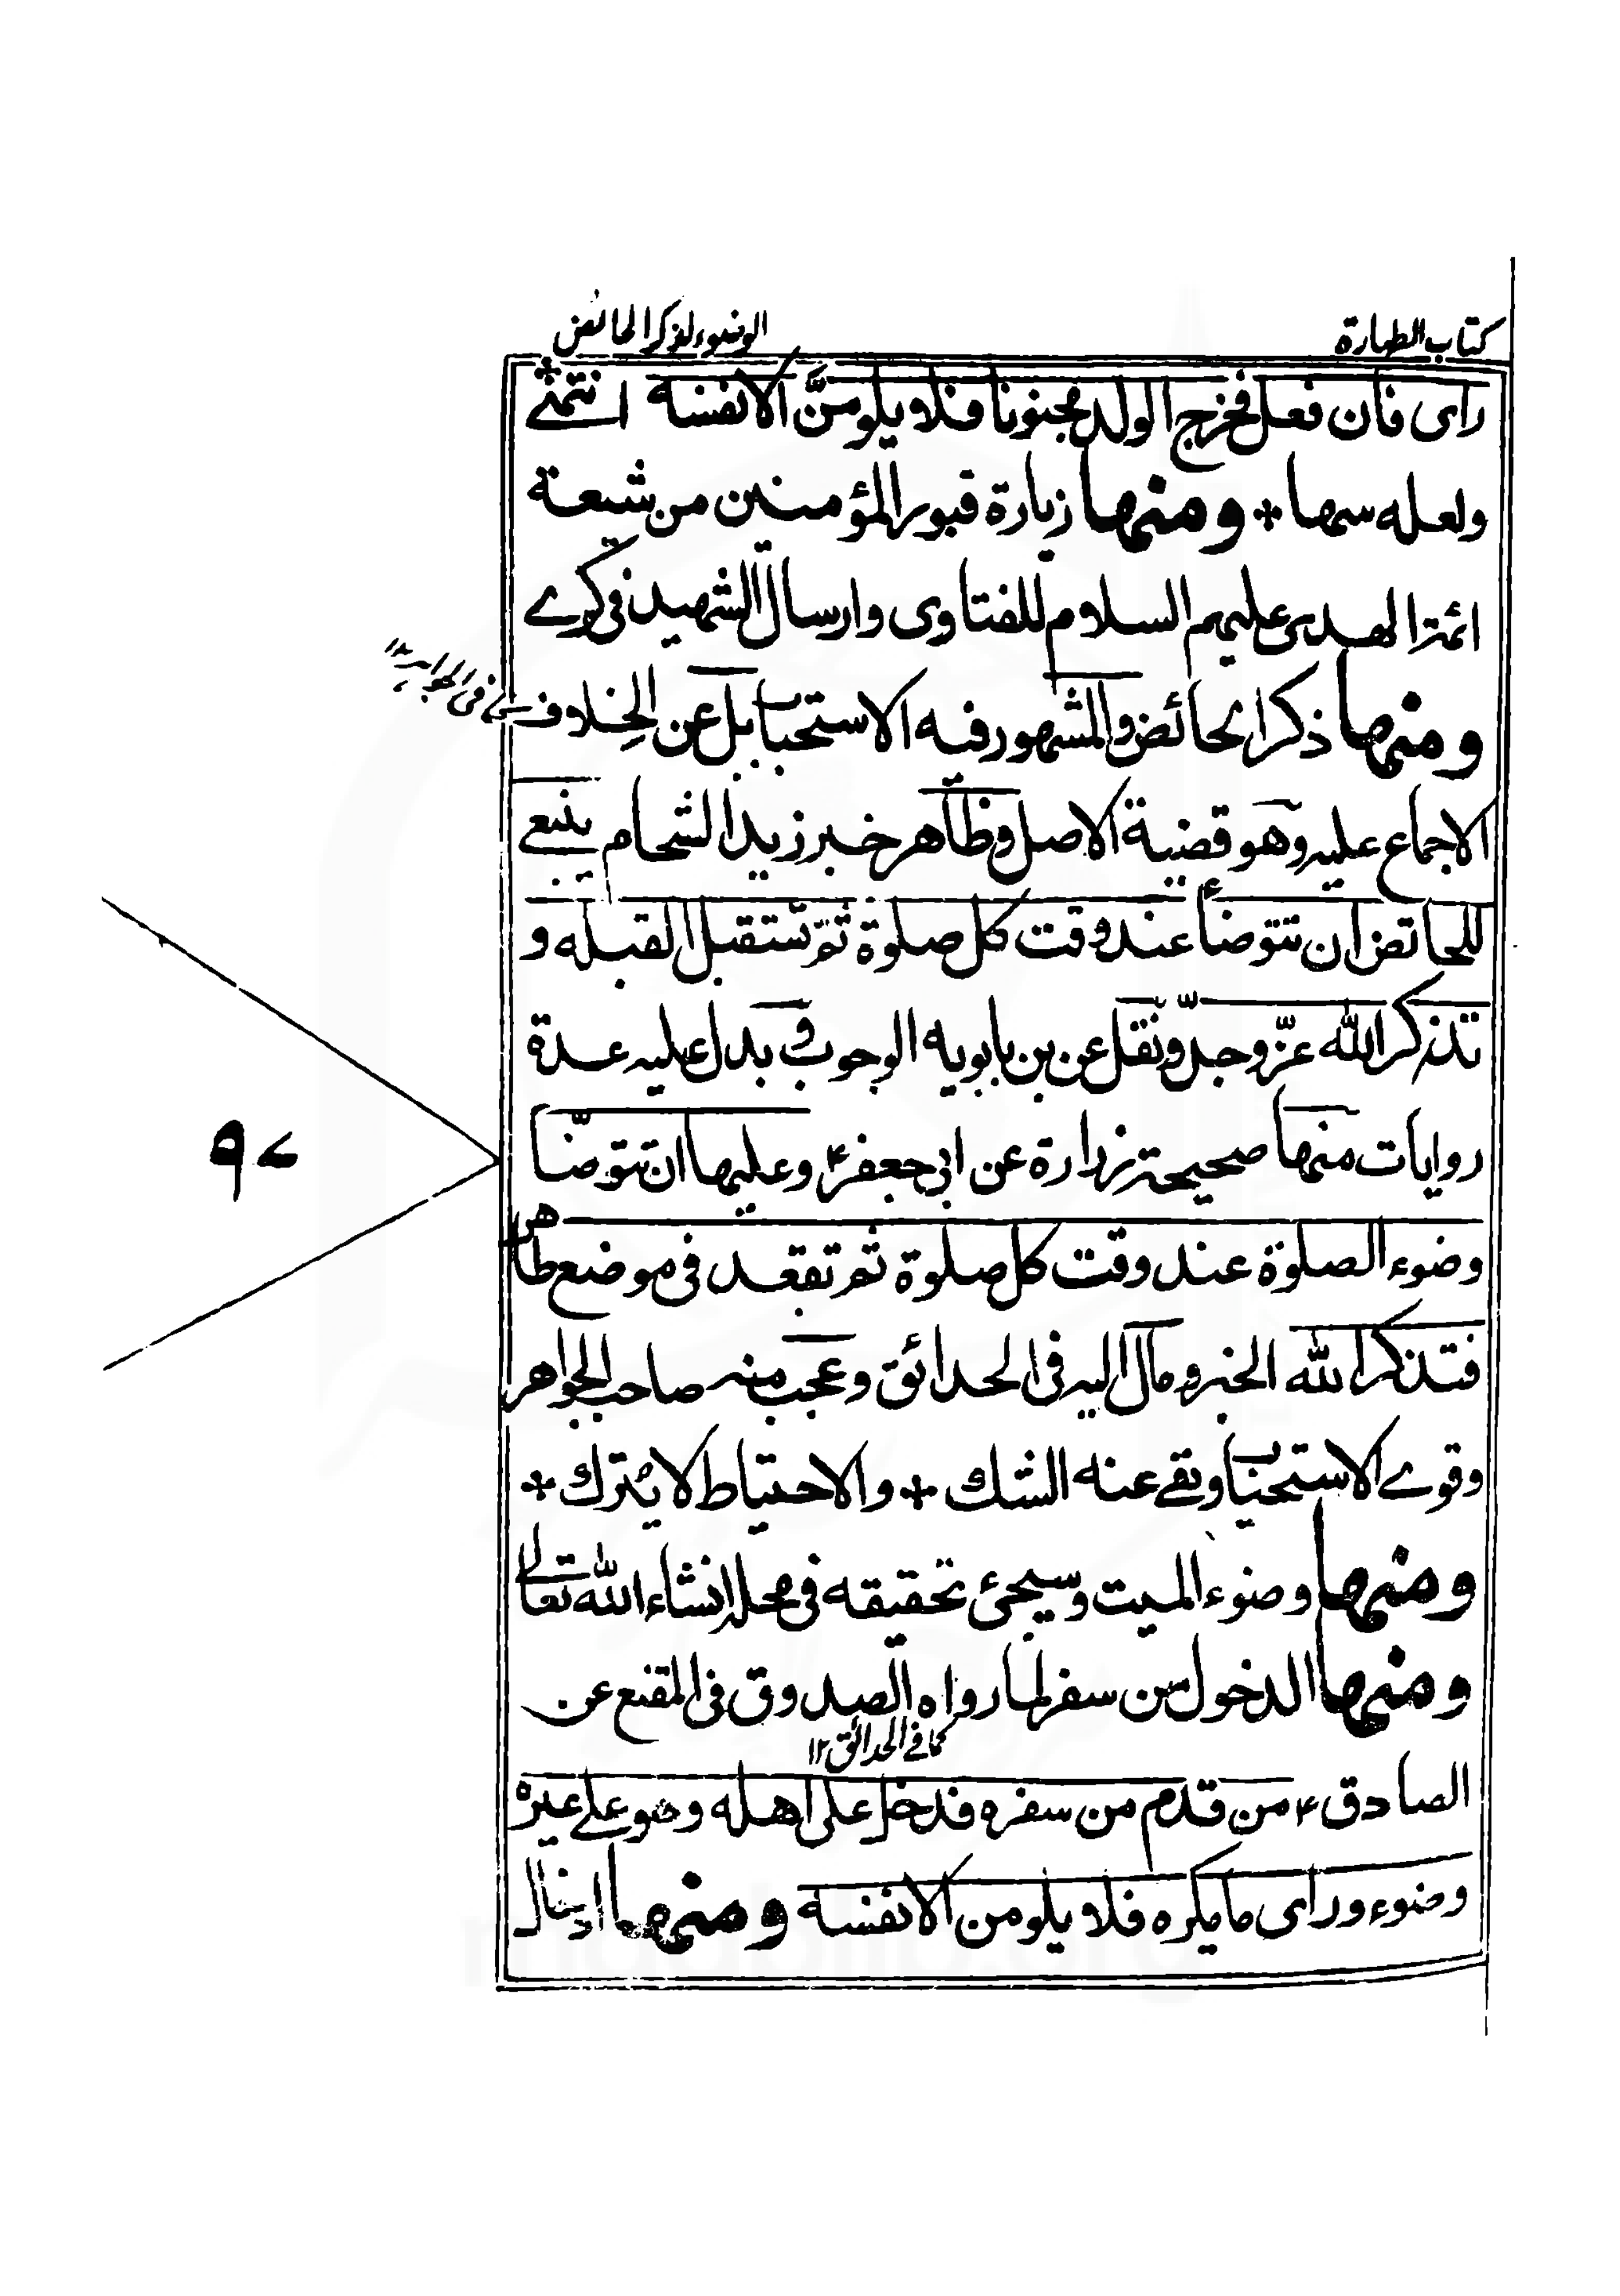 كتاب الطهارة
الوضوء لذكر الحائض
راى فان فعل فخرج الولد مجنونا فلا يلومنّ الا نفسه انتهى
ولعله سها * ومنها زيارة قبور المؤمنين من شيعة
ائمة الهدى عليهم السلام للفتاوى وارسال الشهيد فى كرے
ومنها ذكر الحائض والمشهور فيه الاستحباب بل عن الخلاف
فى الجواهر ١٢
الاجماع عليه وهو قضية الاصل وظاهر خبر زيد الشحام ينبغى
للحائض ان تتوضأ عند وقت كل صلوة ثم تستقبل القبله و
تذكر الله عزّ وجلّ ونقل عن بن بابويه الوجوب ويدل عليه عدة
روايات منها صحيحة زرارة عن ابى جعفر ؑ وعليها ان تتوضّأ
٩٧
وضوء الصلوة عند وقت كل صلوة ثم تقعد فى موضع طاهر
فتذكر الله الخبر ومال اليه فى الحدائق وعجب منه صاحب الجواهر
وقوے الاستحباب ونفى عنه الشك * والاحتياط لا يُترك *
ومنها وضوء الميت وسيجئ تحقيقه فى محله انشاء الله تعالى
ومنها الدخول من سفر لما رواه الصدوق فى المقنع عن
كما فے الحدائق ١٢
الصادق ؑ من قدم من سفره فدخل على اهله وهو على غير
وضوء وراى ما يكره فلا يلومن الا نفسه ومنها ادخال